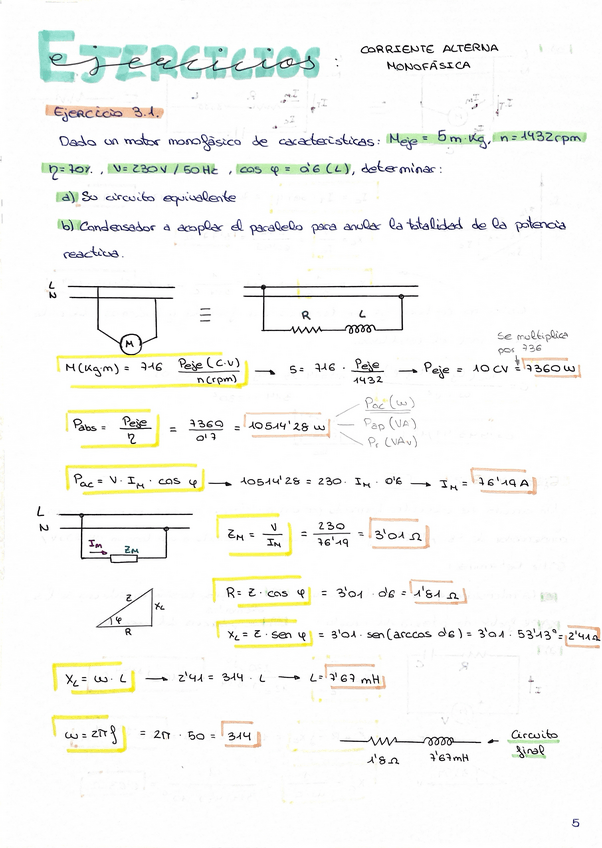 EJERCICIOS
ejercicios :
CORRIENTE ALTERNA
MONOFÁSICA
EJERCICIO 3.1.
Dado un motor monofásico de características: Meje = 5 m·Kg, n = 1432 rpm
η = 70%, V = 230 V / 50 Hz, cos φ = 0'6 (L), determinar:
a) Su circuito equivalente
b) Condensador a acoplar el paralelo para anular la totalidad de la potencia
reactiva.
L
N
M
≡
R L
Se multiplica
por 736
M(Kg·m) = 716 Peje (C.V) / n(rpm) → 5 = 716 · Peje / 1432 → Peje = 10 CV = 7360 W
Pabs = Peje / η = 7360 / 0'7 = 10514'28 W
Pac (W)
Pap (VA)
Pr (VAr)
Pac = V · IM · cos φ → 10514'28 = 230 · IM · 0'6 → IM = 76'19 A
L
N
IM ZM
ZM = V / IM = 230 / 76'19 = 3'01 Ω
Z XL
φ
R
R = Z · cos φ = 3'01 · 0'6 = 1'81 Ω
XL = Z · sen φ = 3'01 · sen(arccos 0'6) = 3'01 · 53'13° = 2'41 Ω
XL = ω · L → 2'41 = 314 · L → L = 7'67 mH
ω = 2πf = 2π · 50 = 314
1'8 Ω 7'67 mH
Circuito
final
5